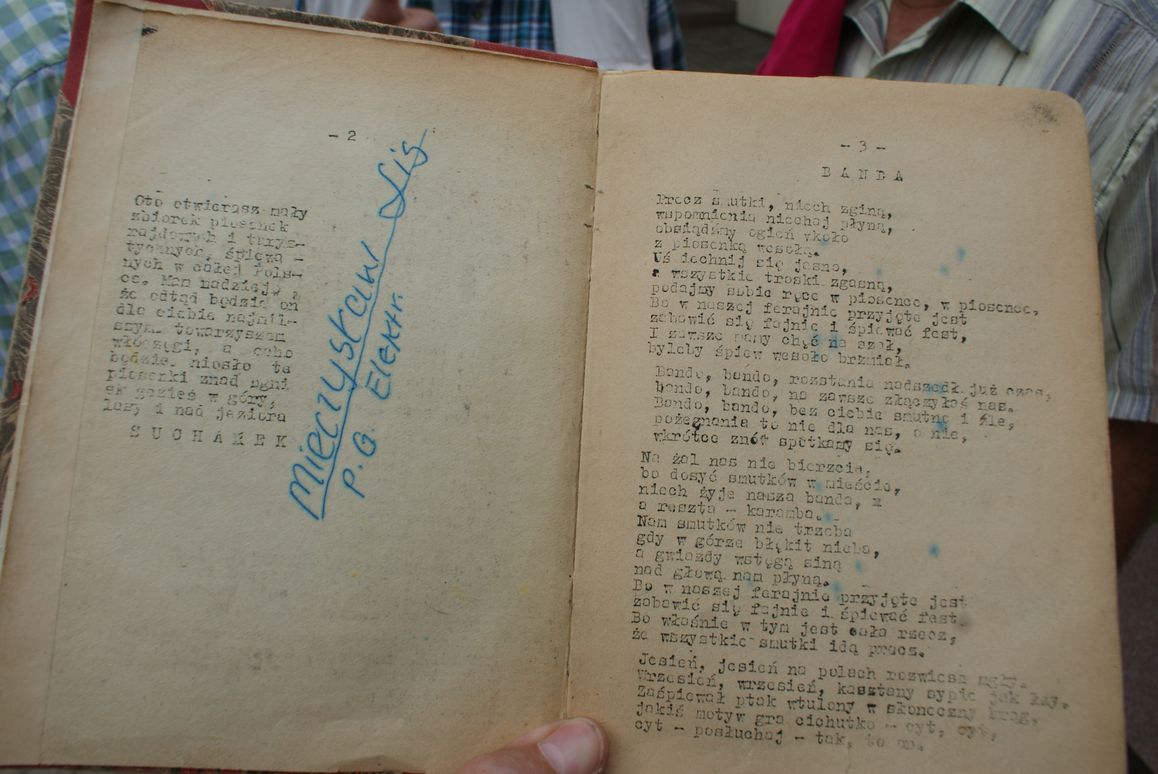 - 2
Oto otwierasz mały
zbiorek piosenek
rajdowych i turys-
tycznych, śpiewa -
nych w całej Pols-
ce. Mam nadzieję,
że odtąd będzie on
dla ciebie najmil-
szym towarzyszem
włóczęgi, a echo
będzie niosło te
piosenki znad ogni
sk gdzieś w góry,
las, i nad jeziora
S U C H A R E K
Mieczysław Lis
P.G. Elektr
- 3 -
B A N D A
Precz smutki, niech zginą,
wspomnienia niechaj płyną,
obsiądźmy ogień wkoło
z piosenką wesołą.
Uś iechnij się jasno,
a wszystkie troski zgasną,
podajmy sobie ręce w piosence, w piosence,
Bo w naszej ferajnie przyjęte jest
zabawić się fajnie i śpiewać fest,
I zawsze mamy chęć na szał,
byleby śpiew wesoło brzmiał.
Bando, bando, rozstania nadszedł już czas,
bando, bando, na zawsze złączyłaś nas.
Bando, bando, bez ciebie smutno i źle,
pożegnania to nie dla nas, o nie,
wkrótce znów spotkamy się.
Na żal nas nie bierzcie,
bo dosyć smutków w mieście,
niech żyje nasza banda,
a reszta - karamba.
Nam smutków nie trzeba
gdy w górze błękit nieba,
a gwiazdy wstęgą siną
nad głową nam płyną.
Bo w naszej ferajnie przyjęte jest
zabawić się fajnie i śpiewać fest
Bo właśnie w tym jest cała rzecz,
że wszystkie smutki idą precz.
Jesień, jesień na polach rozwiesza mgły.
Wrzesień, wrzesień, kasztany sypie jak łzy.
Zaśpiewał ptak wtulony w słoneczny krąg,
jakiś motyw gra cichutko - cyt, cyt,
cyt - posłuchaj - tak, to on.